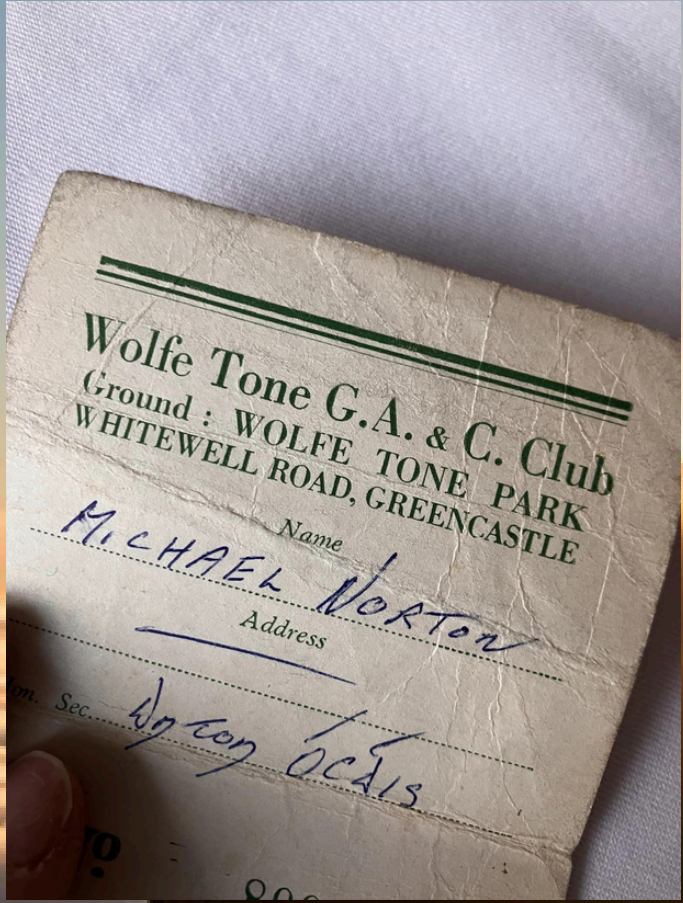 Wolfe Tone G.A. & C. Club
Ground : WOLFE TONE PARK
WHITEWELL ROAD, GREENCASTLE
Name
MICHAEL NORTON
Address
Hon. Sec.